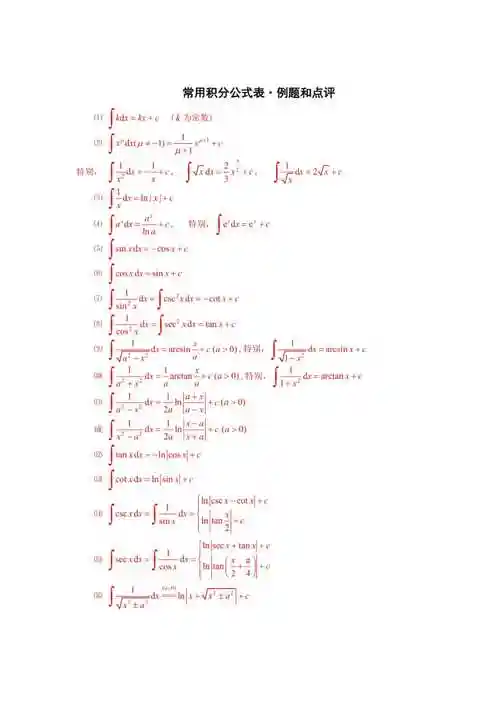 常用积分公式表·例题和点评
⑴ ∫kdx = kx + c （k 为常数）
⑵ ∫x^μ dx(μ ≠ −1) = 1/(μ+1) x^(μ+1) + c
特别， ∫1/x² dx = −1/x + c， ∫√x dx = 2/3 x^(3/2) + c， ∫1/√x dx = 2√x + c
⑶ ∫1/x dx = ln|x| + c
⑷ ∫a^x dx = a^x/ln a + c， 特别，∫e^x dx = e^x + c
⑸ ∫sin xdx = −cos x + c
⑹ ∫cos xdx = sin x + c
⑺ ∫1/sin² x dx = ∫csc² xdx = −cot x + c
⑻ ∫1/cos² x dx = ∫sec² xdx = tan x + c
⑼ ∫1/√(a² − x²) dx = arcsin x/a + c (a > 0)，特别，∫1/√(1 − x²) dx = arcsin x + c
⑽ ∫1/(a² + x²) dx = 1/a arctan x/a + c (a > 0)，特别，∫1/(1 + x²) dx = arctan x + c
⑾ ∫1/(a² − x²) dx = 1/2a ln|(a + x)/(a − x)| + c (a > 0)
∫1/(x² − a²) dx = 1/2a ln|(x − a)/(x + a)| + c (a > 0)
⑿ ∫tan xdx = −ln|cos x| + c
⒀ ∫cot xdx = ln|sin x| + c
⒁ ∫csc xdx = ∫1/sin x dx = { ln|csc x − cot x| + c
ln|tan x/2| + c
⒂ ∫sec xdx = ∫1/cos x dx = { ln|sec x + tan x| + c
ln|tan(x/2 + π/4)| + c
⒃ ∫1/√(x² ± a²) dx = ln|x + √(x² ± a²)| + c